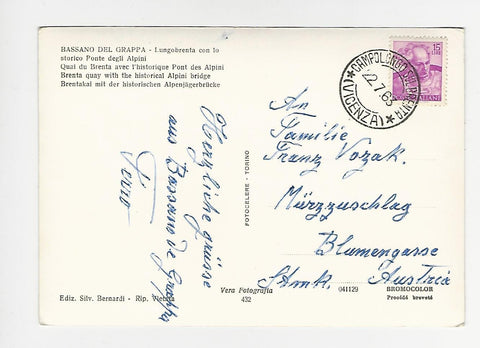 BASSANO DEL GRAPPA - Lungobrenta con lo
storico Ponte degli Alpini
Quai du Brenta avec l'historique Pont des Alpini
Brenta quay with the historical Alpini bridge
Brentakai mit der historischen Alpenjägerbrücke
Herzliche grüsse
aus Bassano de Grappa
Ediz. Silv. Bernardi - Rip. Vietata
FOTOCELERE - TORINO
Vera Fotografia
432
15
CAMPOLONGO SUL BRENTA
22.7.63
(VICENZA)
An
Familie
Franz Vozak.
Mürzzuschlag
Blumengasse
Stmk. Austria
041129
BROMOCOLOR
Procédé breveté